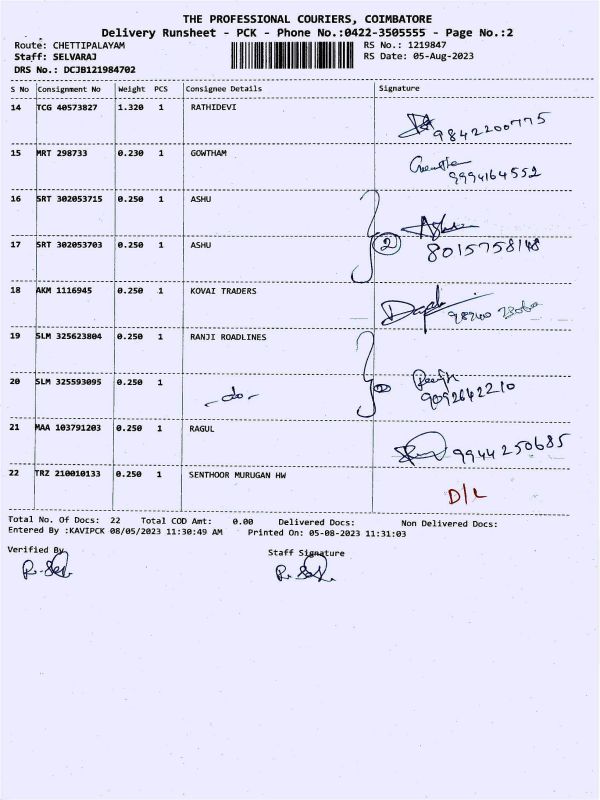 THE PROFESSIONAL COURIERS, COIMBATORE
Delivery Runsheet - PCK - Phone No.:0422-3505555 - Page No.:2
Route: CHETTIPALAYAM RS No.: 1219847
Staff: SELVARAJ RS Date: 05-Aug-2023
DRS No.: DCJB121984702
S No Consignment No Weight PCS Consignee Details Signature
14 TCG 40573827 1.320 1 RATHIDEVI
9842200775
15 MRT 298733 0.230 1 GOWTHAM
9994164552
16 SRT 302053715 0.250 1 ASHU
17 SRT 302053703 0.250 1 ASHU 2 8015758148
18 AKM 1116945 0.250 1 KOVAI TRADERS
19 SLM 325623804 0.250 1 RANJI ROADLINES
20 SLM 325593095 0.250 1 -do- 2
9092642210
21 MAA 103791203 0.250 1 RAGUL
9944250685
22 TRZ 210010133 0.250 1 SENTHOOR MURUGAN HW
D/L
Total No. Of Docs: 22 Total COD Amt: 0.00 Delivered Docs: Non Delivered Docs:
Entered By :KAVIPCK 08/05/2023 11:30:49 AM Printed On: 05-08-2023 11:31:03
Verified By Staff Signature